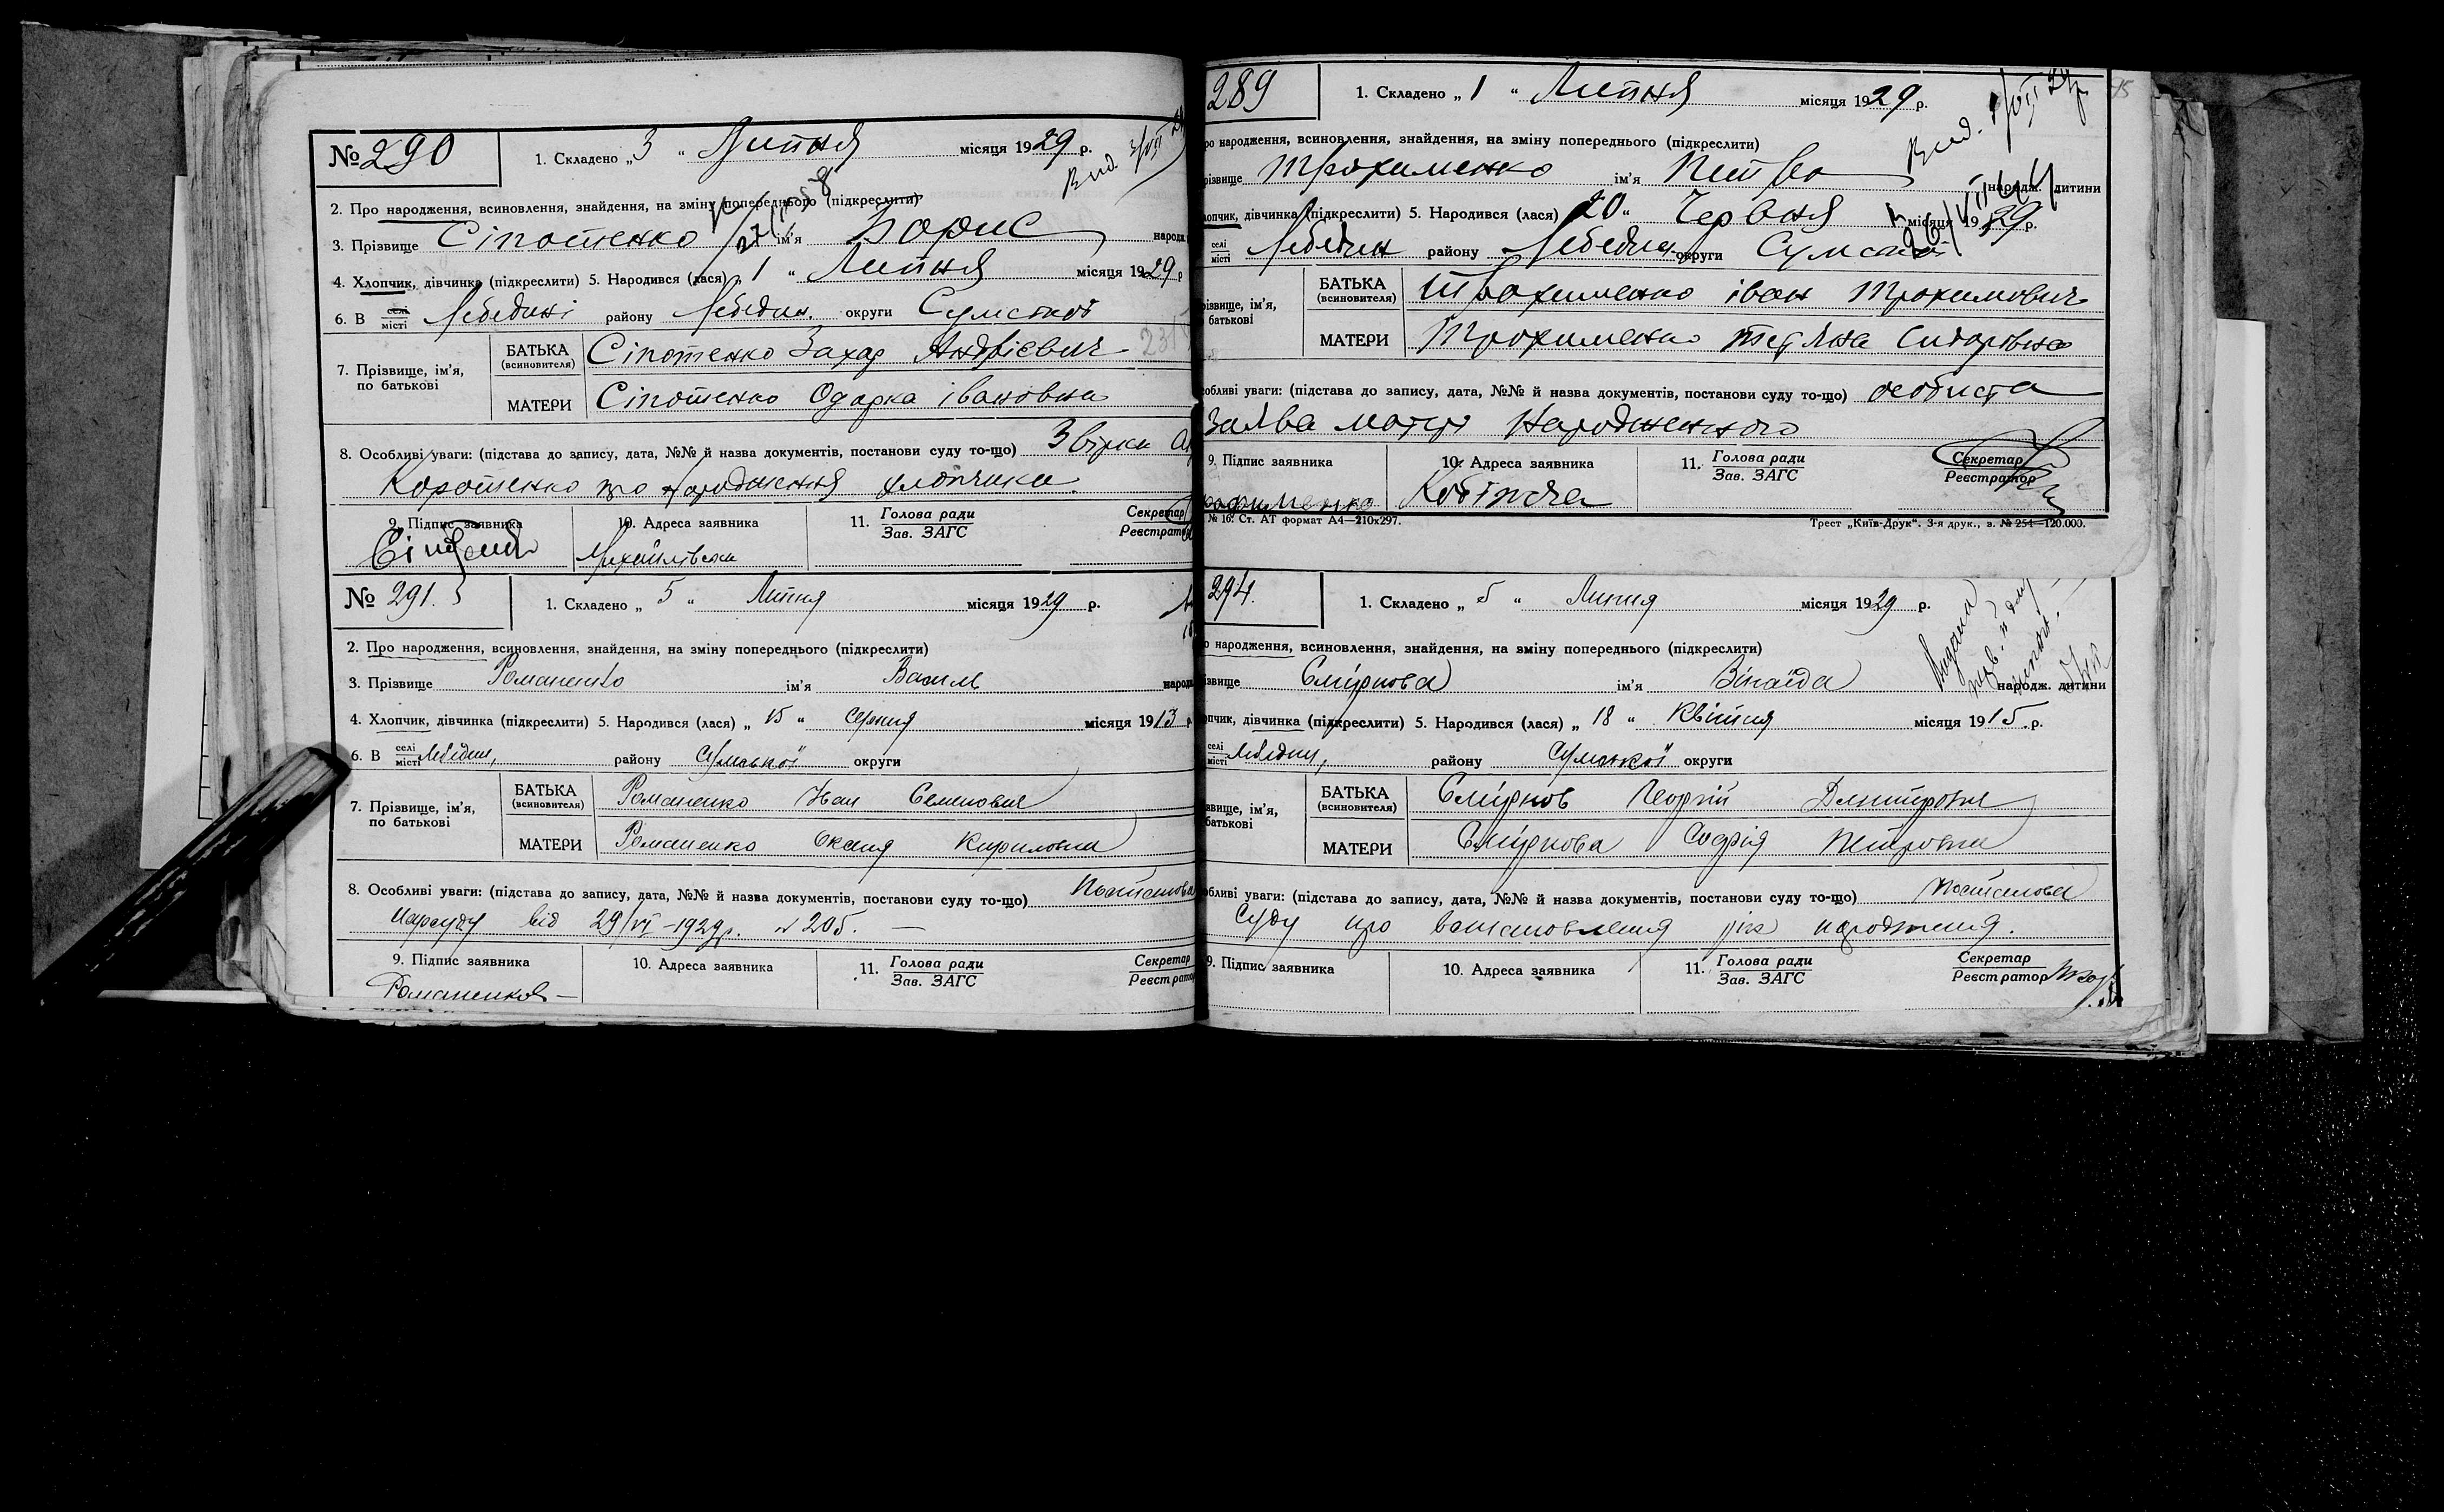 № 290
1. Складено „ 3 “ Липня місяця 1929 р.
2. Про народження, всиновлення, знайдення, на зміну попереднього (підкреслити)
3. Прізвище Сіпотенко ім'я Борис народж
4. Хлопчик, дівчинка (підкреслити) 5. Народився (лася) „ 1 “ Липня місяця 1929 р
6. В селі місті Лебедині району Лебедин. округи Сумської
7. Прізвище, ім'я, по батькові
БАТЬКА (всиновителя) Сіпотенко Захар Андрієвич
МАТЕРИ Сіпотенко Одарка івановна
8. Особливі уваги: (підстава до запису, дата, №№ й назва документів, постанови суду то-що) Звірки
Коротенко про народження хлопчика.
9. Підпис заявника 10. Адреса заявника 11. Голова ради Зав. ЗАГС Секретар Реєстратор
Михайлівська
№ 291.
1. Складено „ 5 “ Липня місяця 1929 р.
2. Про народження, всиновлення, знайдення, на зміну попереднього (підкреслити)
3. Прізвище Романенко ім'я Василь народж
4. Хлопчик, дівчинка (підкреслити) 5. Народився (лася) „ 15 “ Серпня місяця 1913 р
6. В селі місті Лебедин, району Сумської округи
7. Прізвище, ім'я, по батькові
БАТЬКА (всиновителя) Романенко Иван Семенович
МАТЕРИ Романенко Оксана Кириловна
8. Особливі уваги: (підстава до запису, дата, №№ й назва документів, постанови суду то-що) Постанова
Нарсуду від 29/VI-1929р. № 205. —
9. Підпис заявника 10. Адреса заявника 11. Голова ради Зав. ЗАГС Секретар Реєстратор
Романенков
289
1. Складено „ 1 “ Липня місяця 1929 р.
ро народження, всиновлення, знайдення, на зміну попереднього (підкреслити)
різвище Трохименко ім'я Петро народж. дитини
лопчик, дівчинка (підкреслити) 5. Народився (лася) 20 “ Червня місяця 1929 р.
селі місті Лебедин району Лебедин округи Сумської
різвище, ім'я, батькові
БАТЬКА (всиновителя) Трохименко іван Трохимович
МАТЕРИ Трохименко Тетяна Сидорівна
собливі уваги: (підстава до запису, дата, №№ й назва документів, постанови суду то-що) особиста
Заява матері Народженного
9. Підпис заявника 10. Адреса заявника 11. Голова ради Зав. ЗАГС Секретар Реєстратор
№ 16. Ст. АТ формат А4—210х297. Трест „Київ-Друк“. 3-я друк., з. № 254—120.000.
294.
1. Складено „ 5 “ Липня місяця 1929 р.
о народження, всиновлення, знайдення, на зміну попереднього (підкреслити)
ізвище Смірнова ім'я Зінаїда народж. дитини
опчик, дівчинка (підкреслити) 5. Народився (лася) „ 18 “ Квітня місяця 1915 р.
селі місті Лебедин, району Сумської округи
звище, ім'я, батькові
БАТЬКА (всиновителя) Смірнов Георгій Дмитрович
МАТЕРИ Смірнова Софія Петровна
обливі уваги: (підстава до запису, дата, №№ й назва документів, постанови суду то-що) Постанова
Суду про встановлення рік народження.
9. Підпис заявника 10. Адреса заявника 11. Голова ради Зав. ЗАГС Секретар Реєстратор